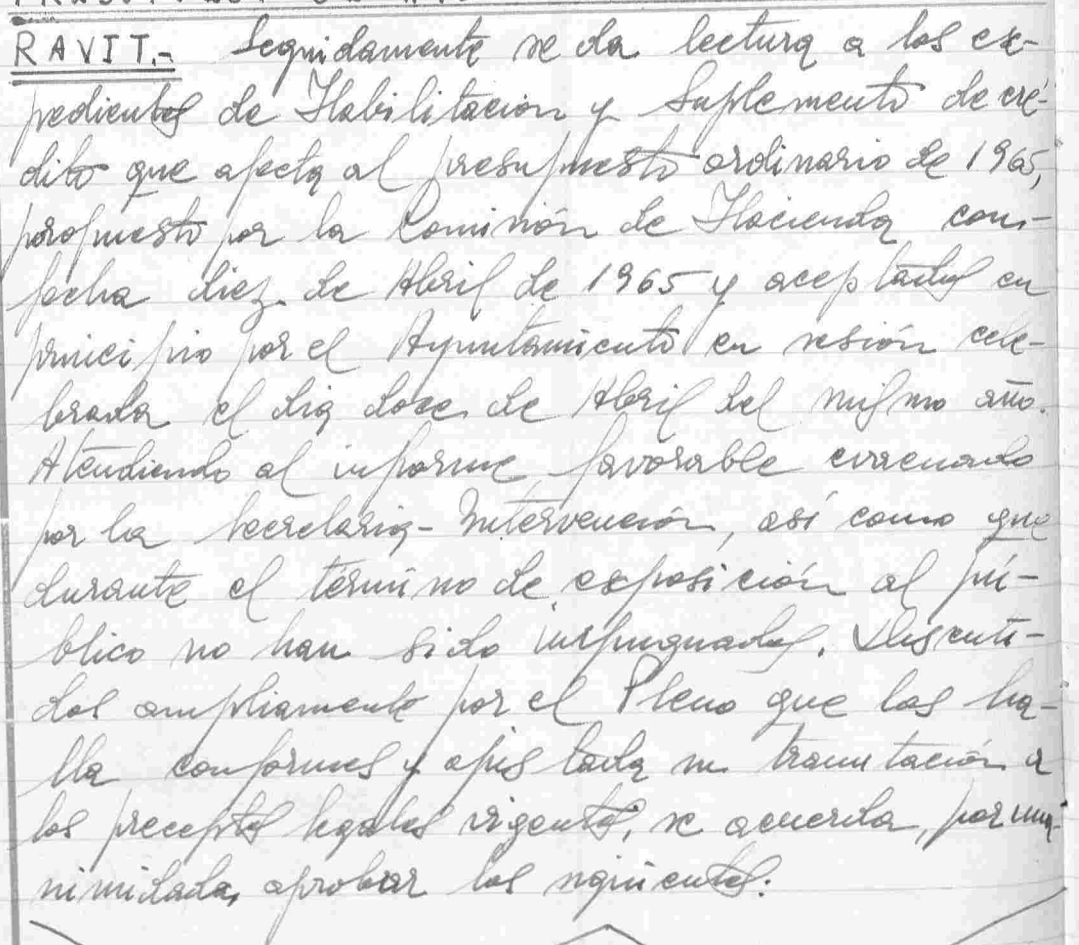 RAVIT.- Seguidamente se da lectura a los ex-
pedientes de Habilitación y Suplemento de cré-
dito que afecta al presupuesto ordinario de 1965,
propuesto por la Comisión de Hacienda con-
fecha diez de Abril de 1965 y aceptados en
principio por el Ayuntamiento en sesión cele-
brada el dia doce de Abril del mismo año.
Atendiendo al informe favorable evacuado
por la Secretaria-Intervención, así como que
durante el término de exposición al pú-
blico no han sido impugnados. Discuti-
dos ampliamente por el Pleno que los ha-
lla conformes y ajustada su tramitación a
los preceptos legales vigentes, se acuerda, por una-
nimidada, aprobar los siguientes: